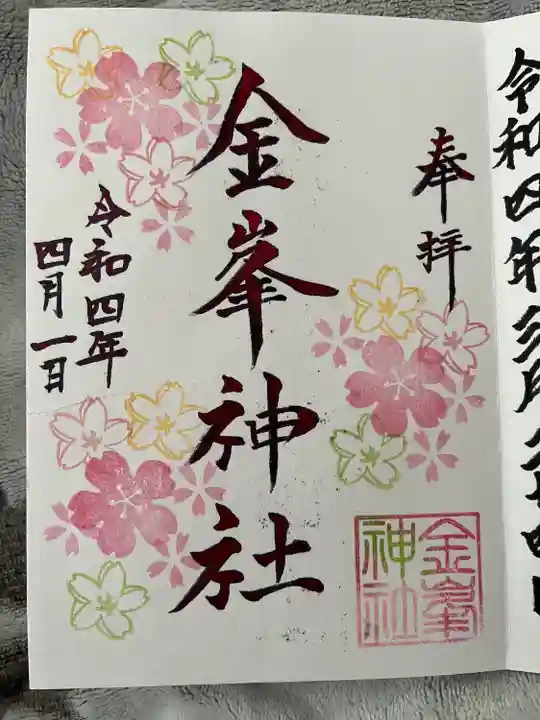 令和四年三月二十四日
奉拝
金峯神社
令和四年
四月一日
金峯
神社